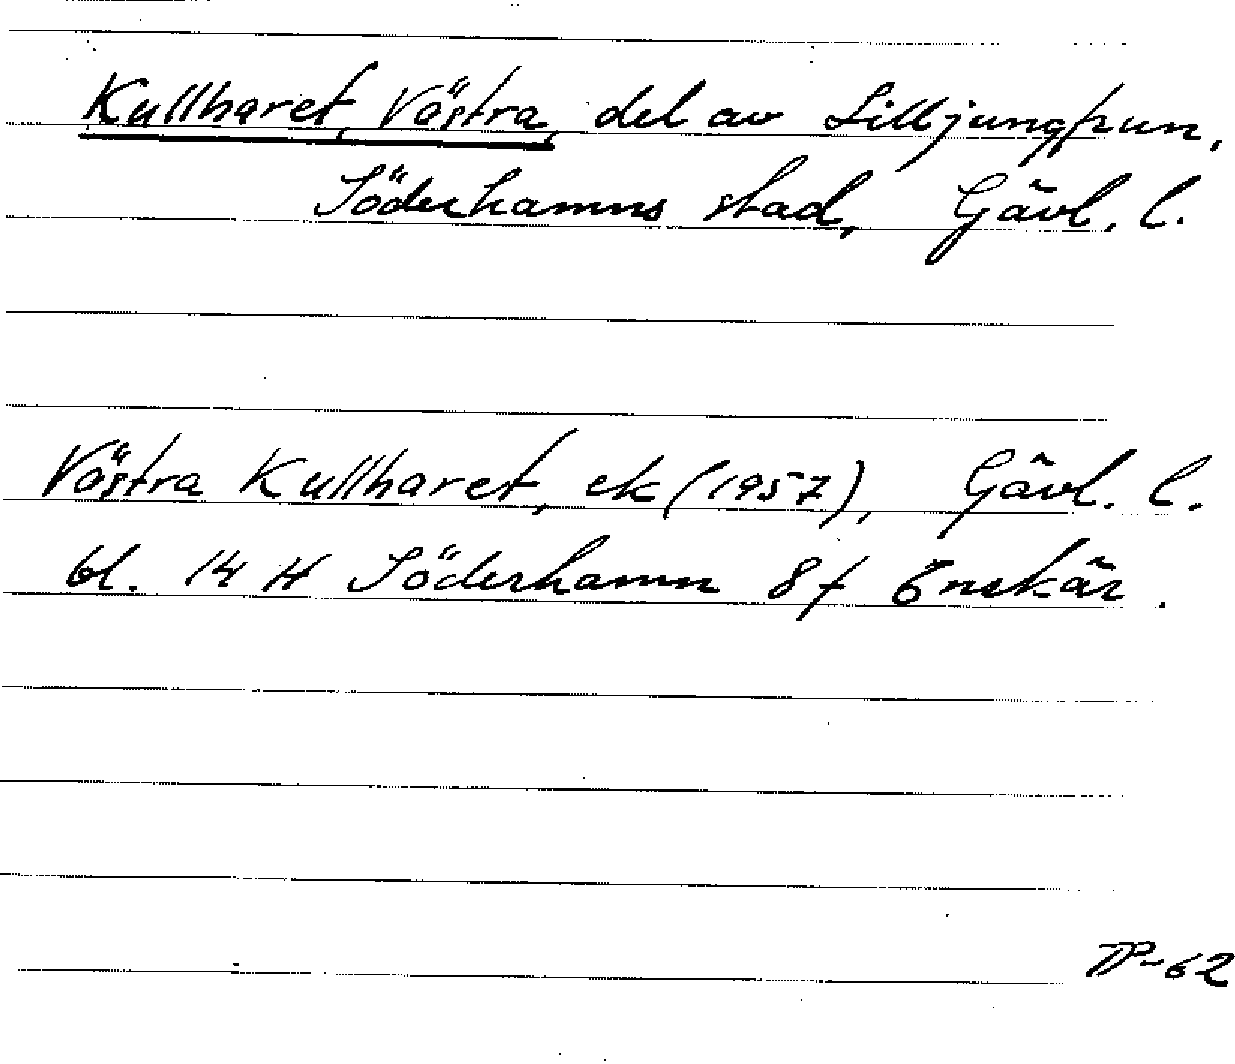 Kullharet, Västra, del av Lilljungfrun,
Söderhamns stad, Gävl. l.
Västra Kullharet, ek (1957), Gävl. l.
bl. 14 H Söderhamn 8f Enskär.
TP-62